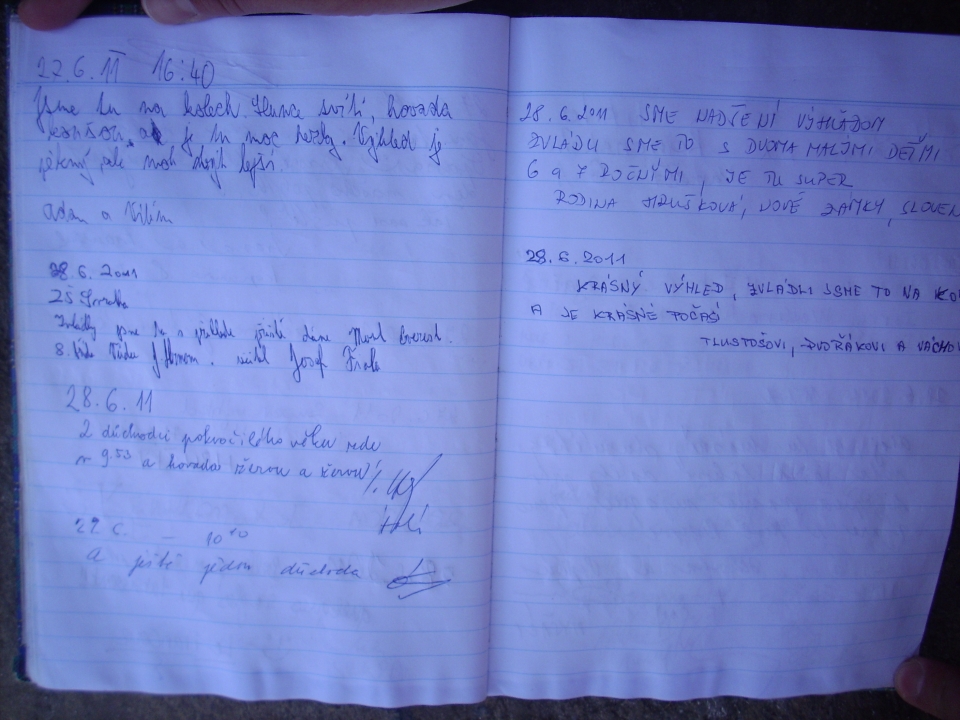 27.6.11 16:40
Jsme tu na kolech. Slunce svítí, hovada
koušou, a je tu moc hezky. Výhled je
pěkný, ale moh být lepší.
Adam a Vilém
28.6.2011
ZŠ
jsme tu a příště dáme Mont Everest.
8. třída Josef
28.6.11
2 důchodci pokročilého věku
v 9.53 a hovada žerou a žerou!
– 10 10
a ještě jeden důchodce
28.6.2011 SME NADŠENÍ VÝHĽADOM
ZVLÁDLI SME TO S DVOMA MALÝMI DEŤMI
6 a 7 ROČNÝMI, JE TU SUPER
RODINA HRUŠKOVÁ, NOVÉ ZÁMKY, SLOVEN
28.6.2011
KRÁSNÝ VÝHLED, ZVLÁDLI JSME TO NA KO
A JE KRÁSNÉ POČAŚÍ
TLUSTOŠOVI, DVOŘÁKOVI A VÁCHOV